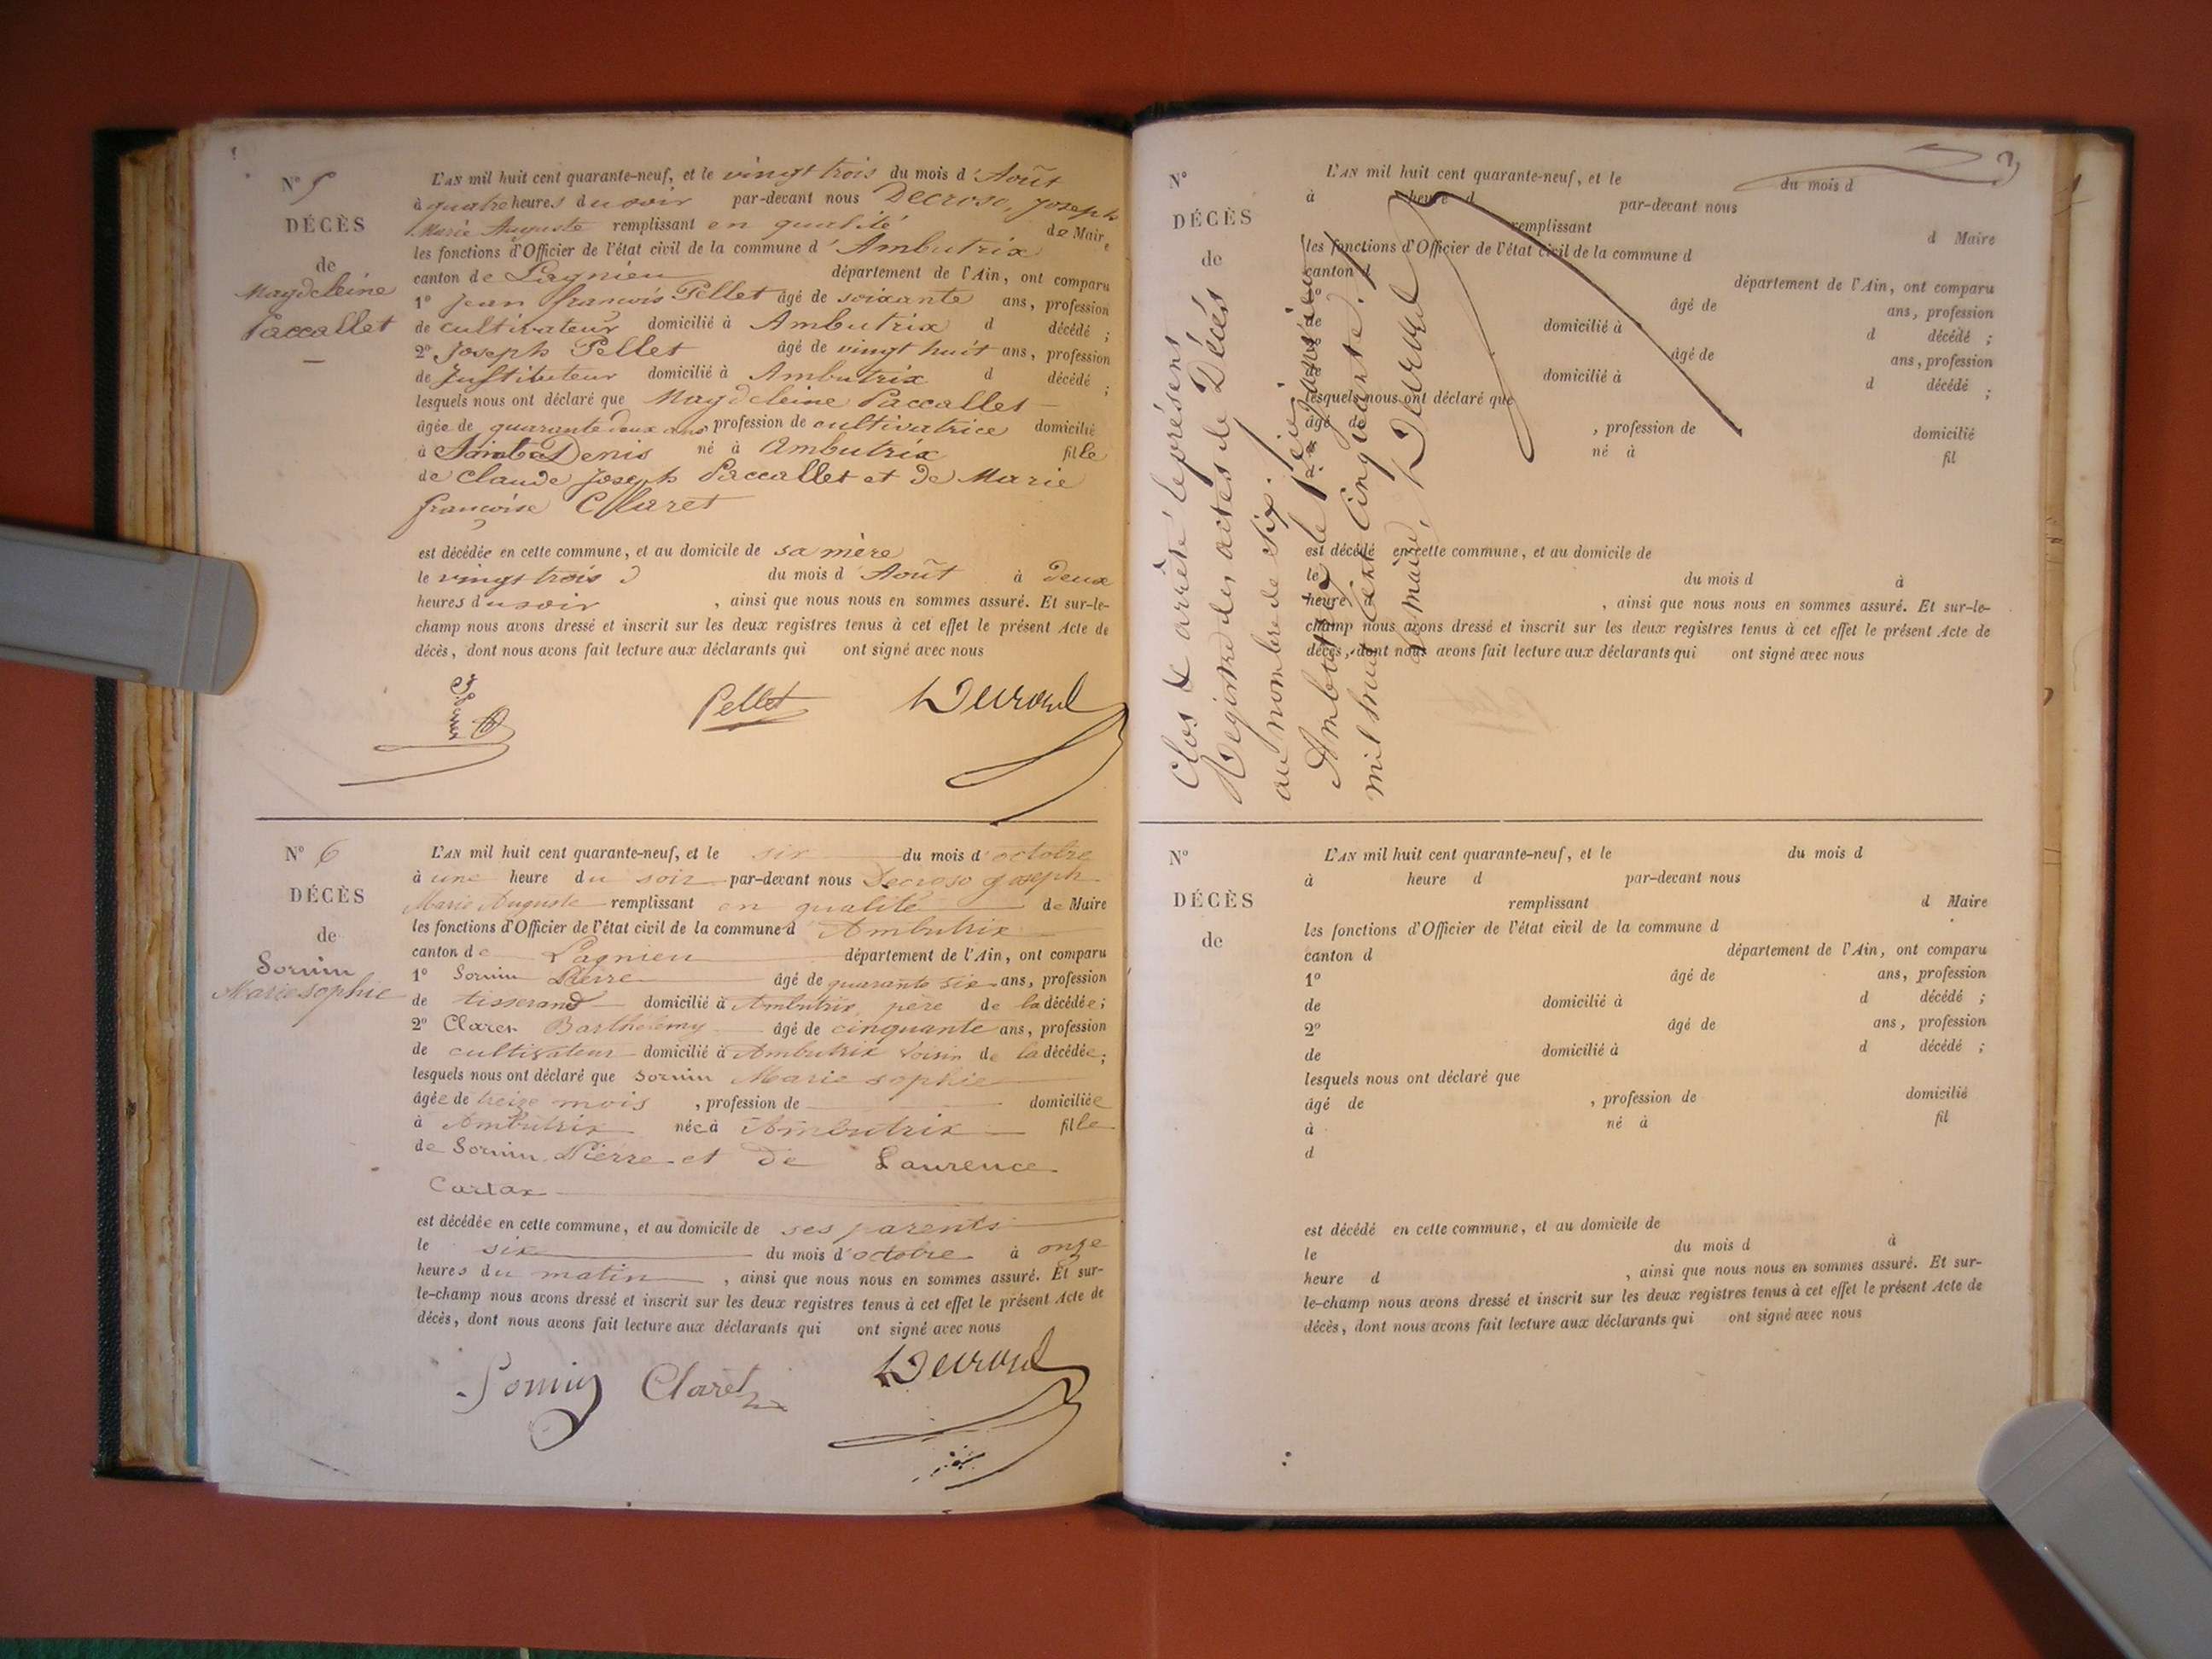 N° 5
DÉCÈS
de
Magdeleine
Paccallet
L'AN mil huit cent quarante-neuf, et le vingt trois du mois d'Août
à quatre heures du soir par-devant nous Decroso, Joseph
Marie Auguste remplissant en qualité de Maire
les fonctions d'Officier de l'état civil de la commune d'Ambutrix
canton de Lagnieu département de l'Ain, ont comparu
1° Jean françois Pellet âgé de soixante ans, profession
de cultivateur domicilié à Ambutrix d décédé ;
2° Joseph Pellet âgé de vingt huit ans, profession
de Justituteur domicilié à Ambutrix d décédé ;
lesquels nous ont déclaré que Magdeleine Paccallet
âgée de quarante deux ans, profession de cultivatrice domicilié
à Saint Denis né à Ambutrix fille
de Claude Joseph Paccallet et de Marie
françoise Claret
est décédée en cette commune, et au domicile de sa mère
le vingt trois du mois d'Août à deux
heures du soir , ainsi que nous nous en sommes assuré. Et sur-le-
champ nous avons dressé et inscrit sur les deux registres tenus à cet effet le présent Acte de
décès, dont nous avons fait lecture aux déclarants qui ont signé avec nous
Pellet
N° 6
DÉCÈS
de
Sornin
Marie sophie
L'AN mil huit cent quarante-neuf, et le six du mois d'octobre
à une heure du soir par-devant nous Decroso Joseph
Marie Auguste remplissant en qualité de Maire
les fonctions d'Officier de l'état civil de la commune d Ambutrix
canton de Lagnieu département de l'Ain, ont comparu
1° Sornin Pierre âgé de quarante six ans, profession
de tisserand domicilié à Ambutrix père de la décédée ;
2° Claret Barthélemy âgé de cinquante ans, profession
de cultivateur domicilié à Ambutrix voisin de la décédée ;
lesquels nous ont déclaré que Sornin Marie sophie
âgée de treize mois , profession de domiciliée
à Ambutrix née à Ambutrix fille
de Sornin Pierre et de Laurence
est décédée en cette commune, et au domicile de ses parents
le six du mois d'octobre à onze
heures du matin , ainsi que nous nous en sommes assuré. Et sur-
le-champ nous avons dressé et inscrit sur les deux registres tenus à cet effet le présent Acte de
décès, dont nous avons fait lecture aux déclarants qui ont signé avec nous
Sornin Claret
N°
DÉCÈS
de
L'AN mil huit cent quarante-neuf, et le du mois d
à heure d par-devant nous
remplissant d Maire
les fonctions d'Officier de l'état civil de la commune d
canton d département de l'Ain, ont comparu
âgé de ans, profession
de domicilié à d décédé ;
âgé de ans, profession
domicilié à d décédé ;
lesquels nous ont déclaré que
âgé de , profession de domicilié
né à fil
est décédé en cette commune, et au domicile de
le du mois d à
heure , ainsi que nous nous en sommes assuré. Et sur-le-
champ nous avons dressé et inscrit sur les deux registres tenus à cet effet le présent Acte de
décès, dont nous avons fait lecture aux déclarants qui ont signé avec nous
Clos & arrêté le présent
Registre des actes de Décès
au nombre de six.
Ambutrix le 1er janvier
mil huit cent cinquante.
le maire,
N°
DÉCÈS
de
L'AN mil huit cent quarante-neuf, et le du mois d
à heure d par-devant nous
remplissant d Maire
les fonctions d'Officier de l'état civil de la commune d
canton d département de l'Ain, ont comparu
1° âgé de ans, profession
de domicilié à d décédé ;
2° âgé de ans, profession
de domicilié à d décédé ;
lesquels nous ont déclaré que
âgé de , profession de domicilié
à né à fil
d
est décédé en cette commune, et au domicile de
le du mois d à
heure d , ainsi que nous nous en sommes assuré. Et sur-
le-champ nous avons dressé et inscrit sur les deux registres tenus à cet effet le présent Acte de
décès, dont nous avons fait lecture aux déclarants qui ont signé avec nous